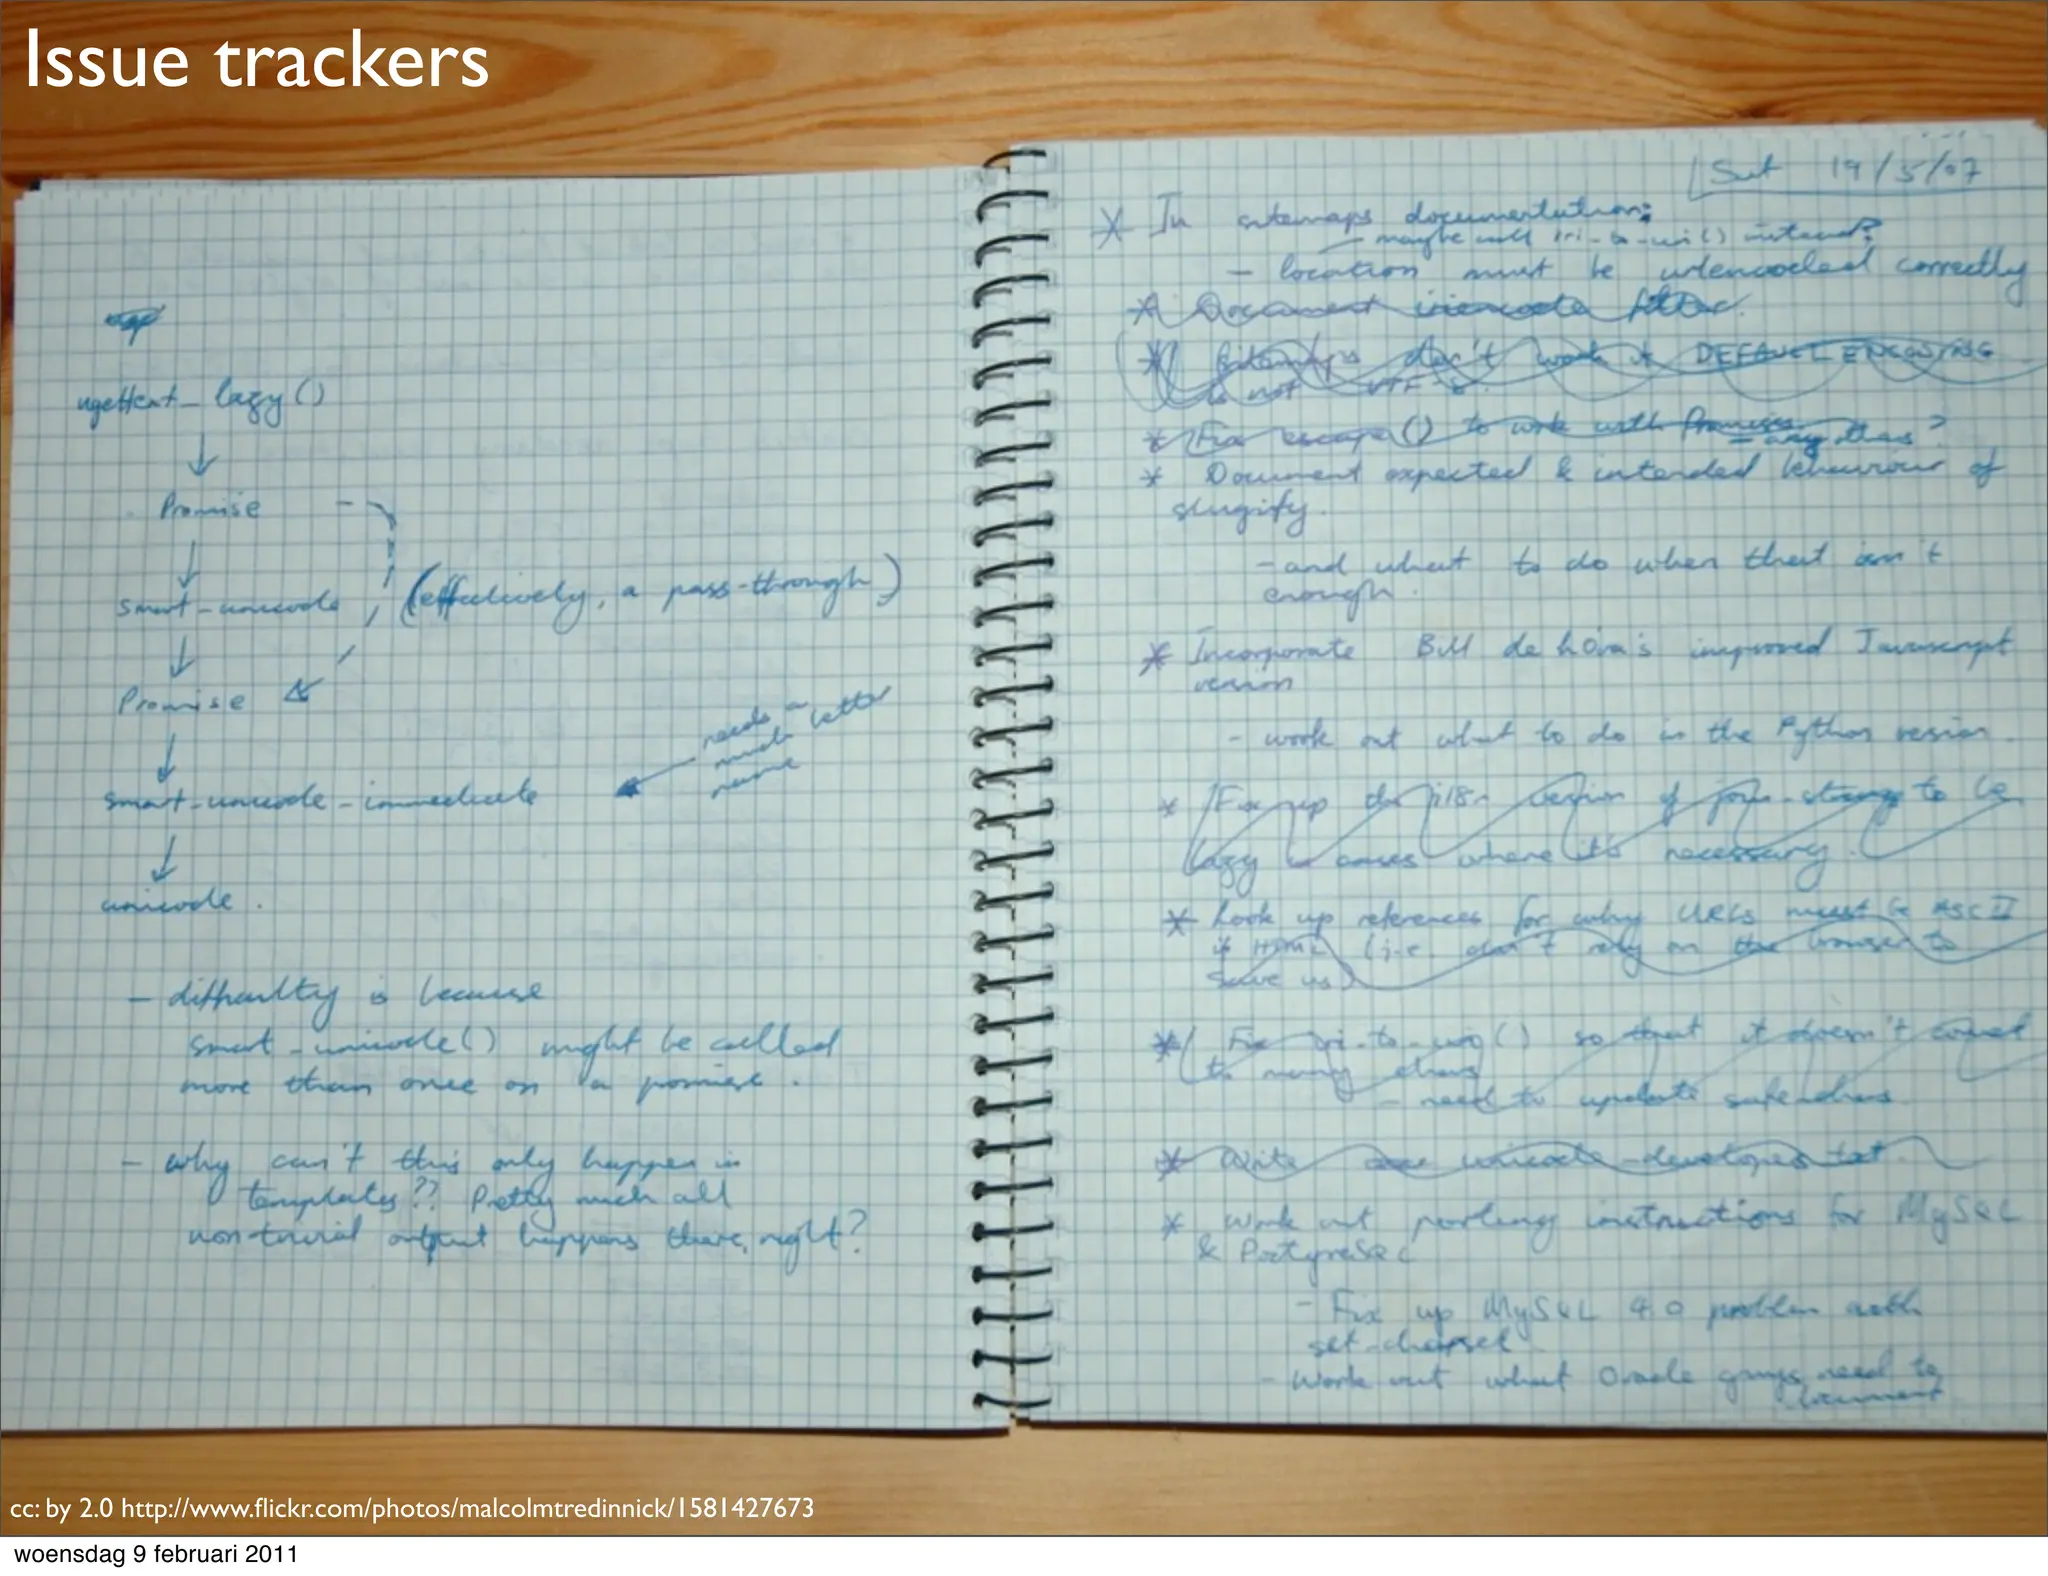 Issue trackers
ugettext_lazy()
Promise
smart_unicode (effectively, a pass-through)
Promise
needs a
much better
name
smart_unicode_immediate
unicode.
- difficulty is because
smart_unicode() might be called
more than once on a promise.
- why can't this only happen in
templates?? Pretty much all
non-trivial output happens there, right?
Sat 19/5/07
* In sitemaps documentation:
- maybe call iri_to_uri() instead?
- location must be urlencoded correctly
* Document iriencode filter.
* Sitemaps don't work if DEFAULT ENCODING
is not UTF-8.
* Fix escape() to work with Promises.
* Document expected & intended behaviour of
slugify.
- and what to do when that isn't
enough.
* Incorporate Bill de hOra's improved Javascript
version
- work out what to do in the Python version.
* Fix up the i18n version of to be
lazy in cases where it's necessary.
* Look up references for why URLs must be ASCII
in HTML (i.e. don't rely on the browser to
save us)
* Fix iri_to_uri() so that it doesn't
many chars
- need to update safe chars
* Write unicode-developer text.
* Work out porting instructions for MySQL
& PostgreSQL
- Fix up MySQL 4.0 problem with
set_charset
- Work out what Oracle guys need to
document
cc: by 2.0 http://www.flickr.com/photos/malcolmtredinnick/1581427673
woensdag 9 februari 2011